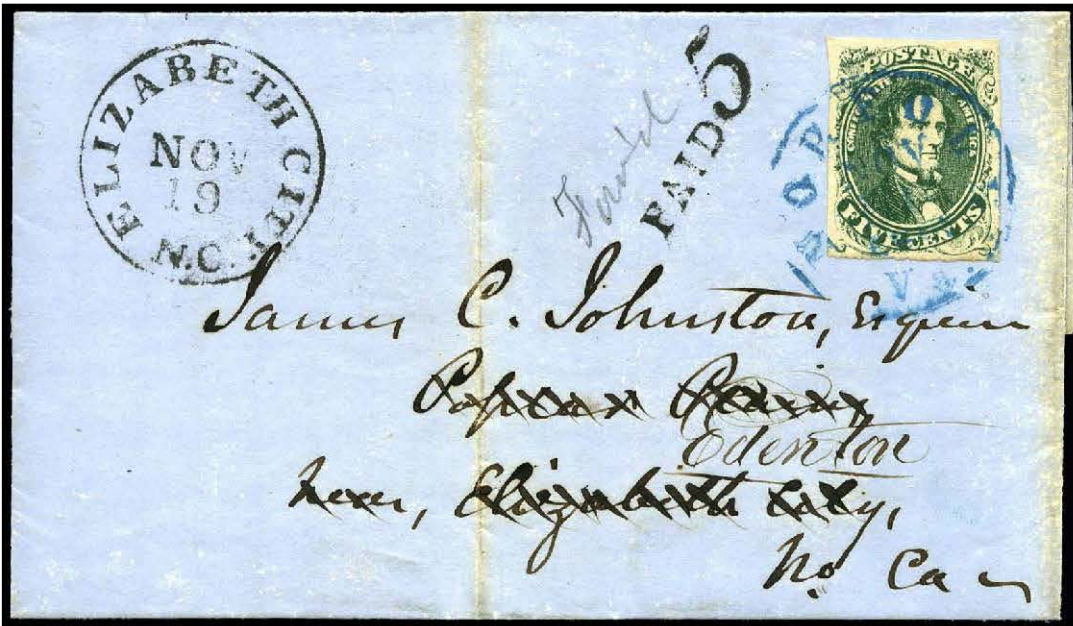 ELIZABETH CITY
NOV
19
N.C.
Forw'd
PAID 5
POSTAGE
FIVE CENTS
VA.
James C. Johnston, Esquire
Edenton
near, Elizabeth City,
No Ca